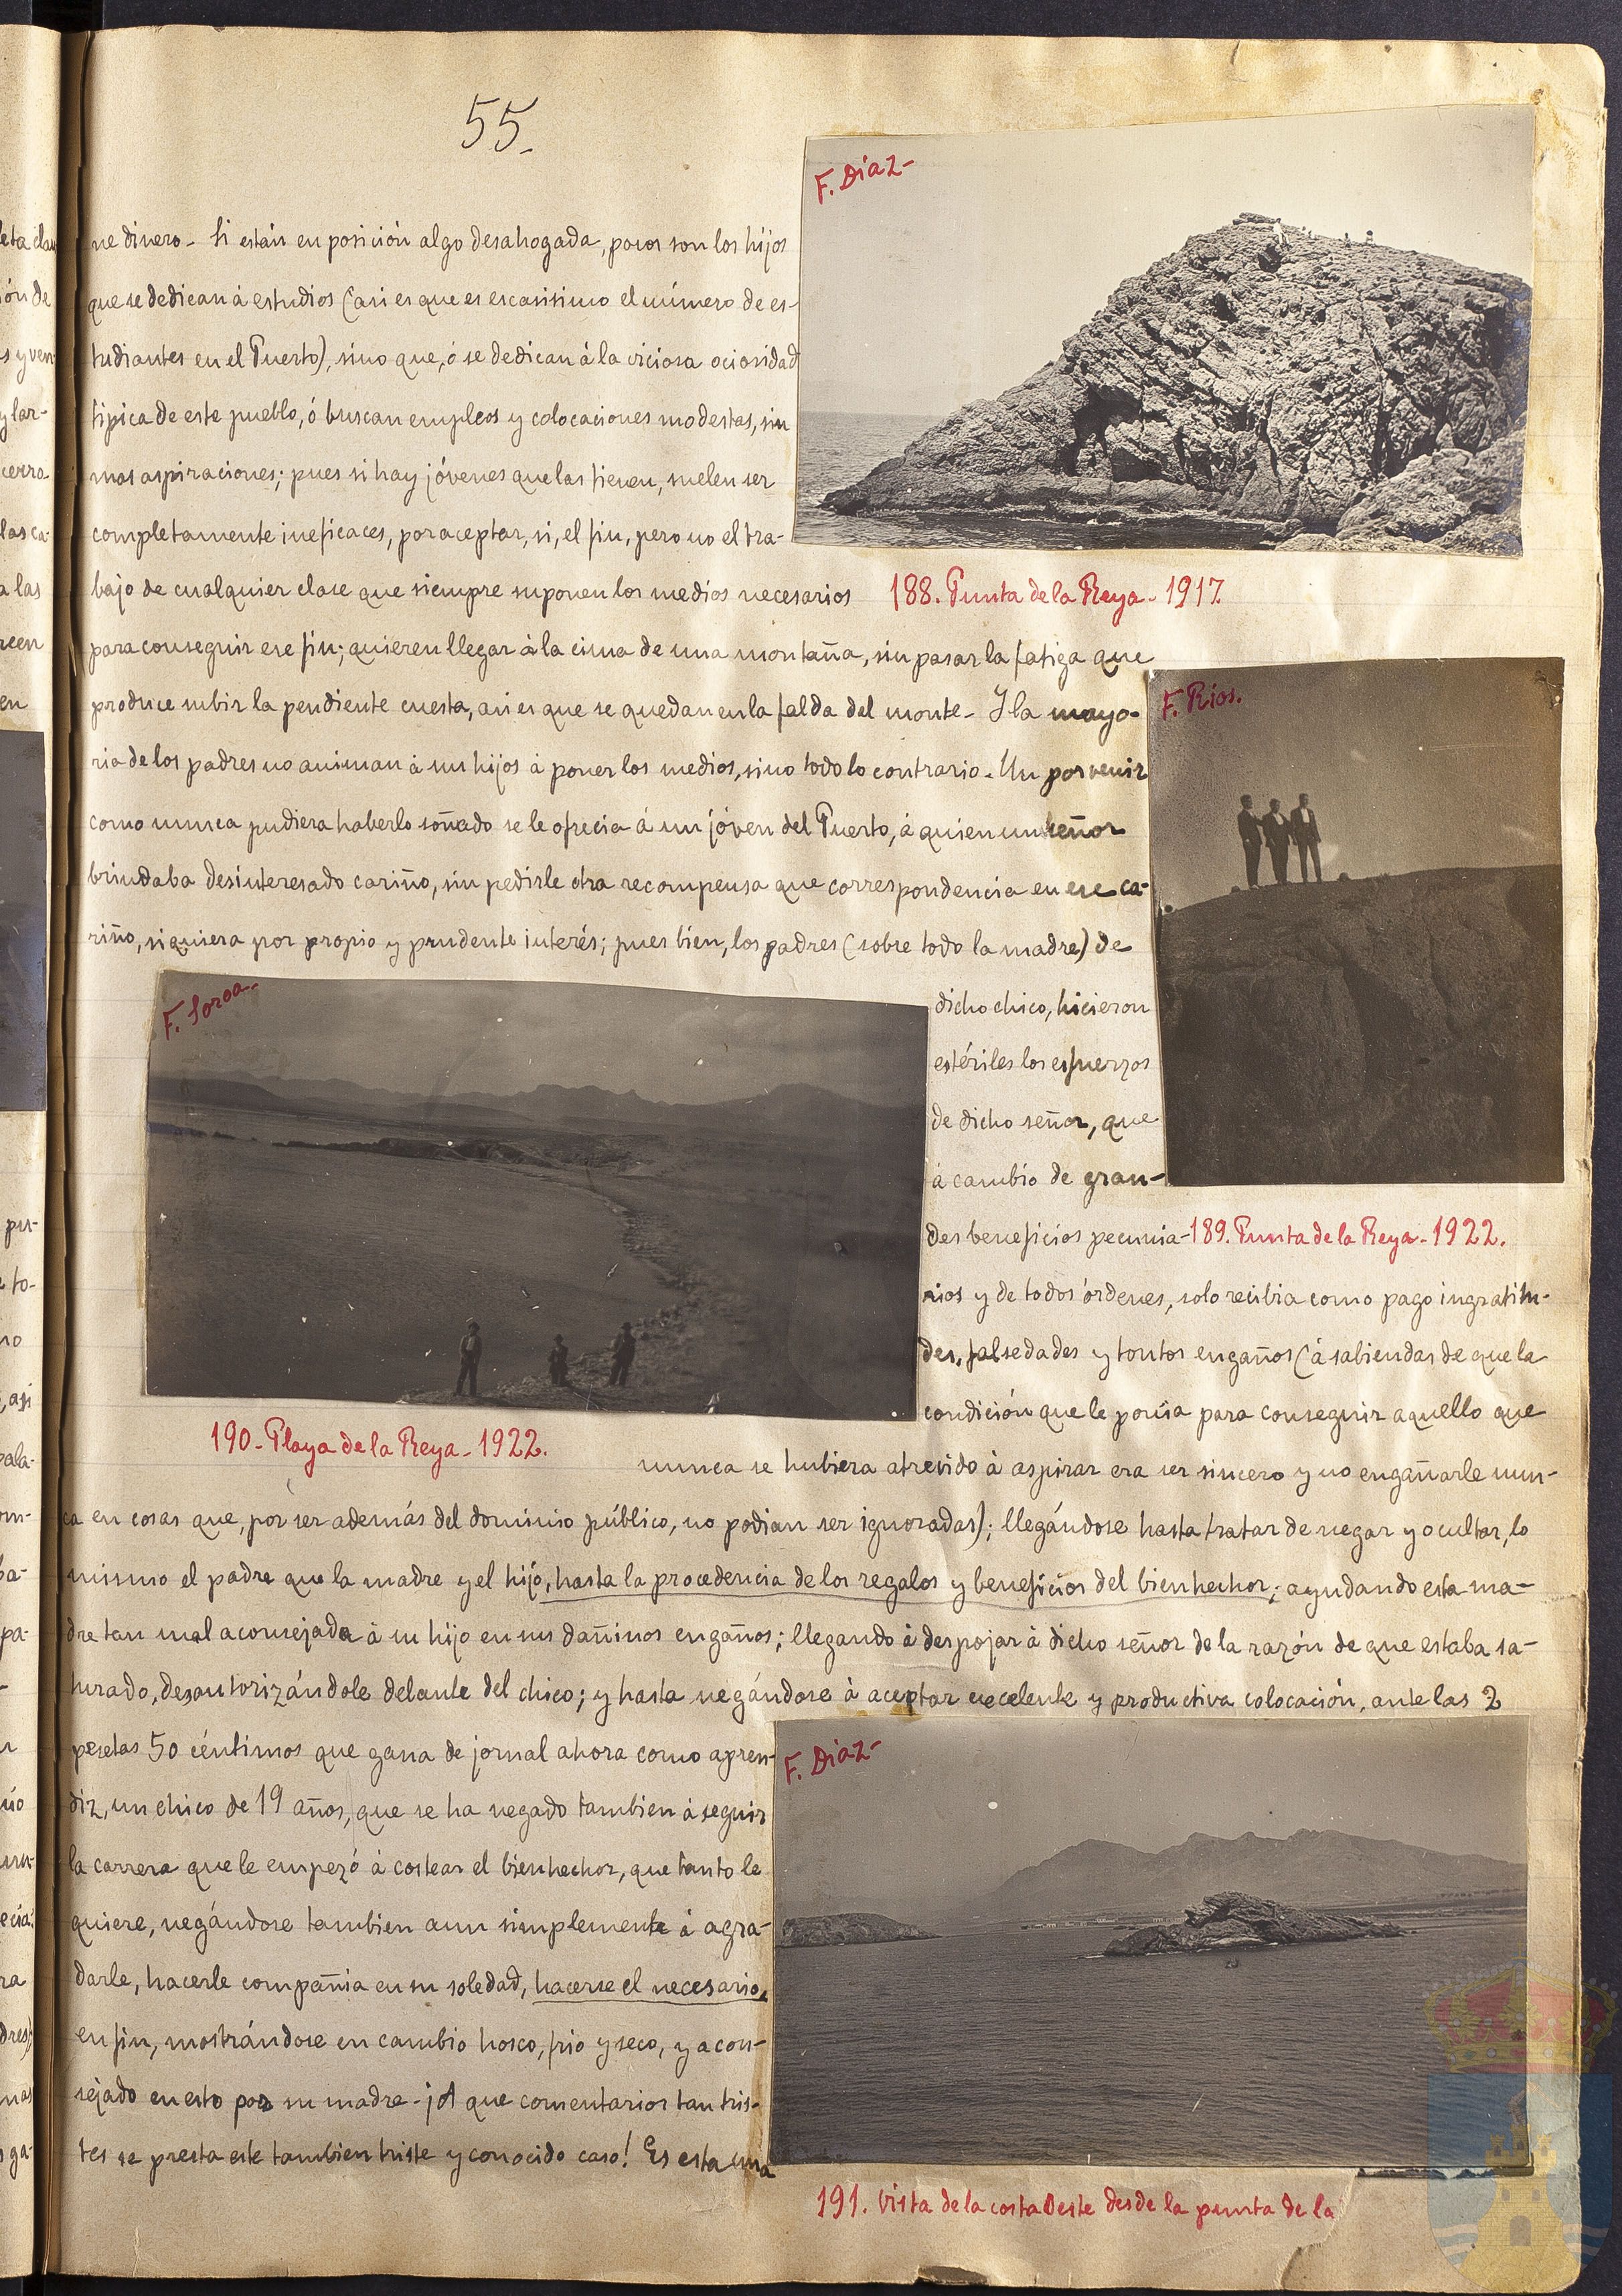 55.
F. Díaz-
ne dinero- Si están en posición algo desahogada, pocos son los hijos
que se dedican á estudios (asi es que es escasisimo el número de es-
tudiantes en el Puerto), sino que, ó se dedican á la viciosa ociosidad
tipica de este pueblo, ó buscan empleos y colocaciones modestas, sin
mas aspiraciones; pues si hay jóvenes que las tienen, suelen ser
completamente ineficaces, por aceptar, si, el fin, pero no el tra-
bajo de cualquier clase que siempre suponen los medios necesarios
188. Punta de la Reya- 1917.
para conseguir ese fin; quieren llegar á la cima de una montaña, sin pasar la fatiga que
F. Ríos.
produce subir la pendiente cuesta, asi es que se quedan en la falda del monte- Y la mayo-
ria de los padres no animan á sus hijos á poner los medios, sino todo lo contrario. Un porvenir
como nunca pudiera haberlo soñado se le ofrecia á un jóven del Puerto, á quien un señor
brindaba desinteresado cariño, sin pedirle otra recompensa que correspondencia en ese ca-
riño, siquiera por propio y prudente interés; pues bien, los padres (sobre todo la madre) de
F. Soroa-
dicho chico, hicieron
estériles los esfuerzos
de dicho señor, que
á cambio de gran-
des beneficios pecunia-
189. Punta de la Reya- 1922.
rios y de todos órdenes, solo recibia como pago ingratitu-
des, falsedades y tontos engaños (á sabiendas de que la
condición que le ponia para conseguir aquello que
190- Playa de la Reya- 1922.
nunca se hubiera atrevido á aspirar era ser sincero y no engañarle nun-
ca en cosas que, por ser además del dominio público, no podian ser ignoradas); llegándose hasta tratar de negar y ocultar, lo
mismo el padre que la madre y el hijo, hasta la procedencia de los regalos y beneficios del bienhechor; ayudando esta ma-
dre tan mal aconsejada á su hijo en sus dañinos engaños; llegando á despojar á dicho señor de la razón de que estaba sa-
turado, desautorizándole delante del chico; y hasta negándose á aceptar excelente y productiva colocación, ante las 2
pesetas 50 céntimos que gana de jornal ahora como apren-
F. Díaz-
diz, un chico de 19 años, que se ha negado tambien á seguir
la carrera que le empezó á costear el bienhechor, que tanto le
quiere, negándose tambien aun simplemente á agra-
darle, hacerle compañia en su soledad, hacerse el necesario,
en fin, mostrándose en cambio hosco, frio y seco, y acon-
sejado en esto por su madre- ¡A que comentarios tan tris-
tes se presta este tambien triste y conocido caso! Es esta una
191. Vista de la costa Oeste desde la punta de la